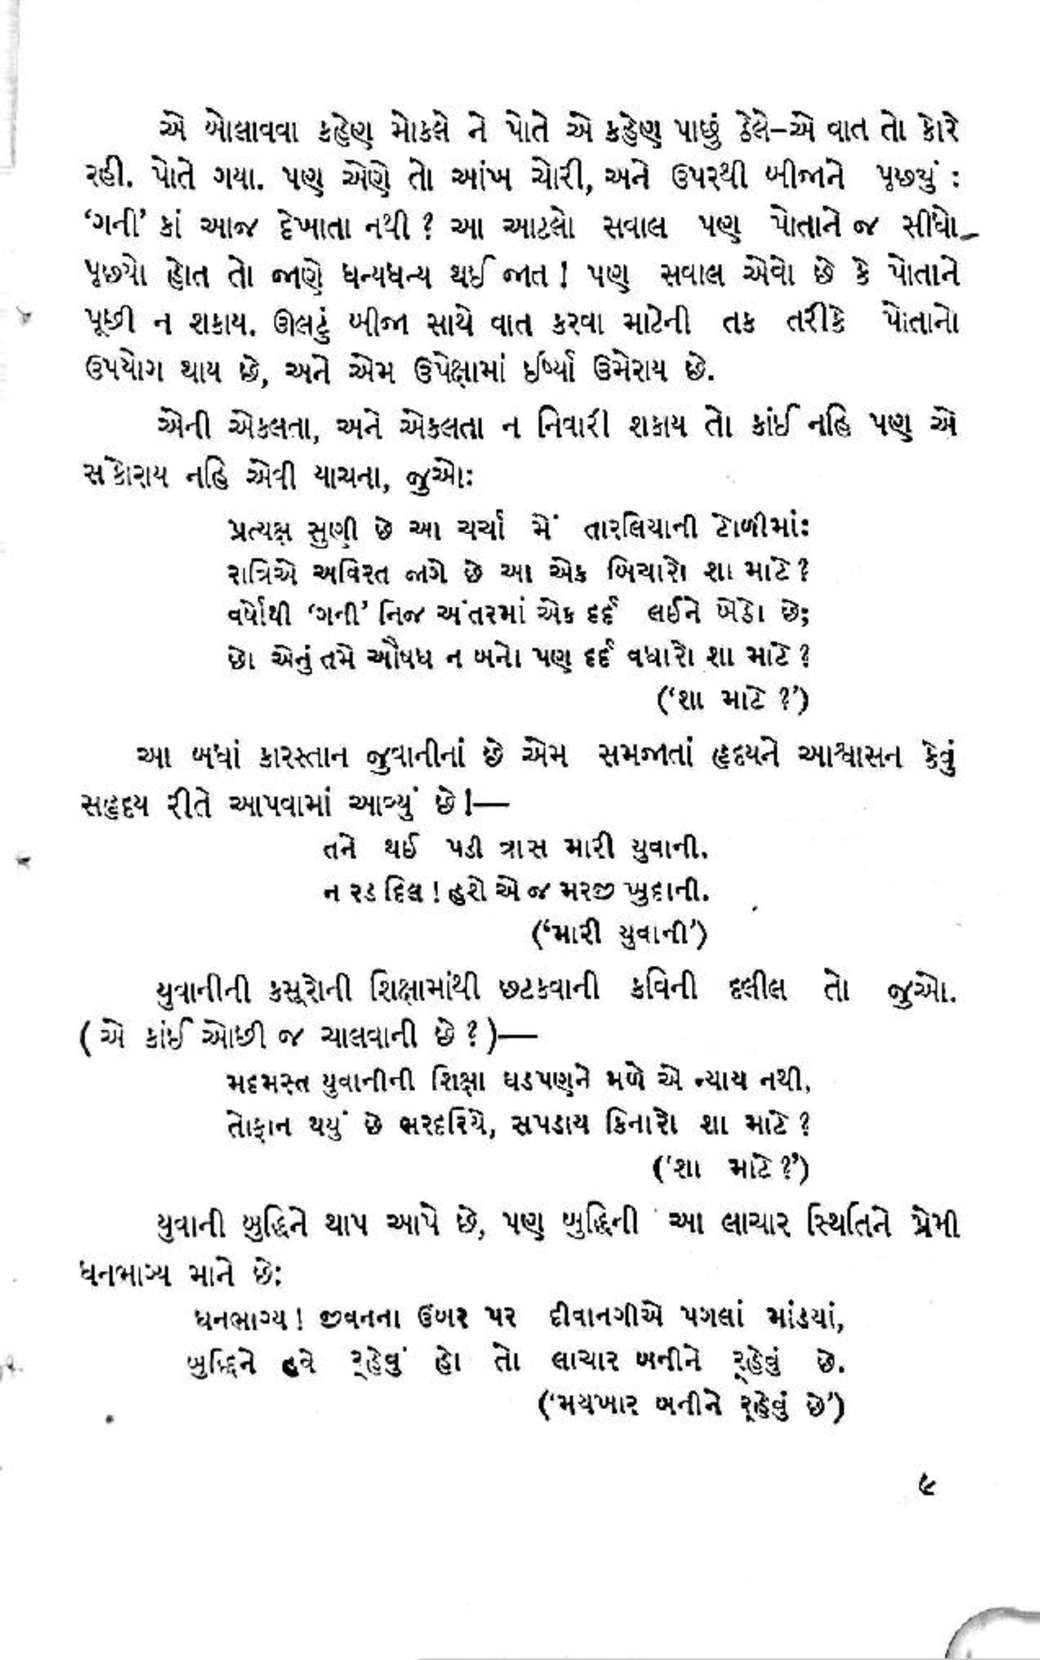 એ બોલાવવા કહેણ મોકલે ને પોતે એ કહેણ પાછું ઠેલે–એ વાત તો કોરે
રહી. પોતે ગયા. પણ એણે તો આંખ ચોરી, અને ઉપરથી બીજાને પૃછ્યું :
‘ગની’ કાં આજ દેખાતા નથી ? આ આટલો સવાલ પણ પોતાને જ સીધો
પૃછ્યો હોત તો જાણે ધન્યધન્ય થઈ જાત ! પણ સવાલ એવો છે કે પોતાને
પૂછી ન શકાય. ઊલટું બીજા સાથે વાત કરવા માટેની તક તરીકે પોતાનો
ઉપયોગ થાય છે, અને એમ ઉપેક્ષામાં ઈર્ષ્યા ઉમેરાય છે.
એની એકલતા, અને એકલતા ન નિવારી શકાય તો કાંઈ નહિ પણ એ
સકોરાય નહિ એવી યાચના, જુઓ:
પ્રત્યક્ષ સુણી છે આ ચર્ચા મેં તારલિયાની ટોળીમાં:
રાત્રિએ અવિરત જાગે છે આ એક બિચારો શા માટે ?
વર્ષોથી ‘ગની’ નિજ અંતરમાં એક દર્દ લઈને બેઠો છે;
છો એનું તમે ઔષધ ન બનો પણ દર્દ વધારો શા માટે ?
(‘શા માટે ?’)
આ બધાં કારસ્તાન જુવાનીનાં છે એમ સમજાતાં હૃદયને આશ્વાસન કેવું
સહૃદય રીતે આપવામાં આવ્યું છે !—
તને થઈ પડી ત્રાસ મારી યુવાની.
ન રડ દિલ ! હશે એ જ મરજી ખુદાની.
(‘મારી યુવાની’)
યુવાનીની કસૂરોની શિક્ષામાંથી છટકવાની કવિની દલીલ તો જુઓ.
(એ કાંઈ ઓછી જ ચાલવાની છે ?)—
મદમસ્ત યુવાનીની શિક્ષા ઘડપણને મળે એ ન્યાય નથી,
તોફાન થયું છે ભરદરિયે, સપડાય કિનારો શા માટે ?
(‘શા માટે ?’)
યુવાની બુદ્ધિને થાપ આપે છે, પણ બુદ્ધિની આ લાચાર સ્થિતિને પ્રેમી
ધનભાગ્ય માને છે:
ધનભાગ્ય ! જીવનના ઉંબર પર દીવાનગીએ પગલાં માંડયાં,
બુદ્ધિને હવે ર્‌હેવું હો તો લાચાર બનીને ર્‌હેવું છે.
(‘મયખાર બનીને ર્‌હેવું છે’)
૯